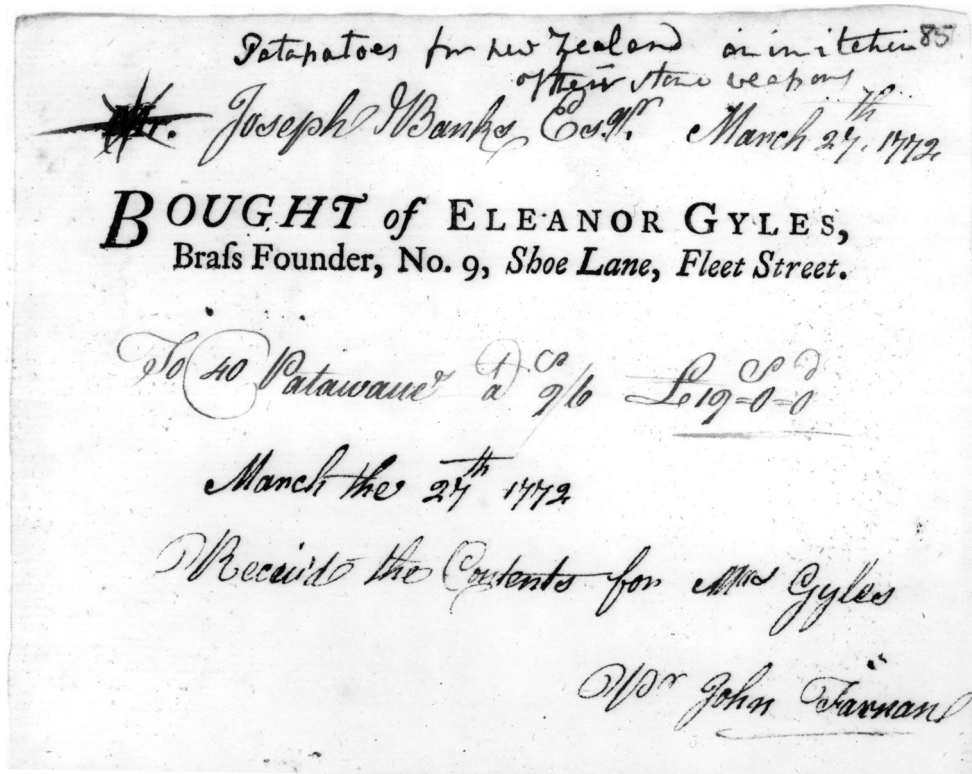 85
Patapatoes for new Zealand in imitation
of their stone weapons
Mr. Joseph Banks Esqr. March 27th. 1772
BOUGHT of ELEANOR GYLES,
Braſs Founder, No. 9, Shoe Lane, Fleet Street.
To 40 Patawaue's a 9/6 £19=0=0
March the 27th 1772
Receiv'd the Contents for Mrs Gyles
Pr John Farnan